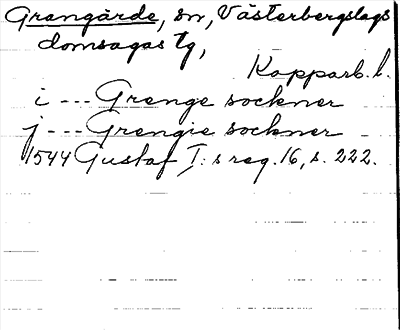 Grangärde, sn, Västerbergslags
domsagas tg,
Kopparb. l.
i --- Grenge sockner
j --- Grengie sockner
1544 Gustaf I:s reg. 16, s. 222.